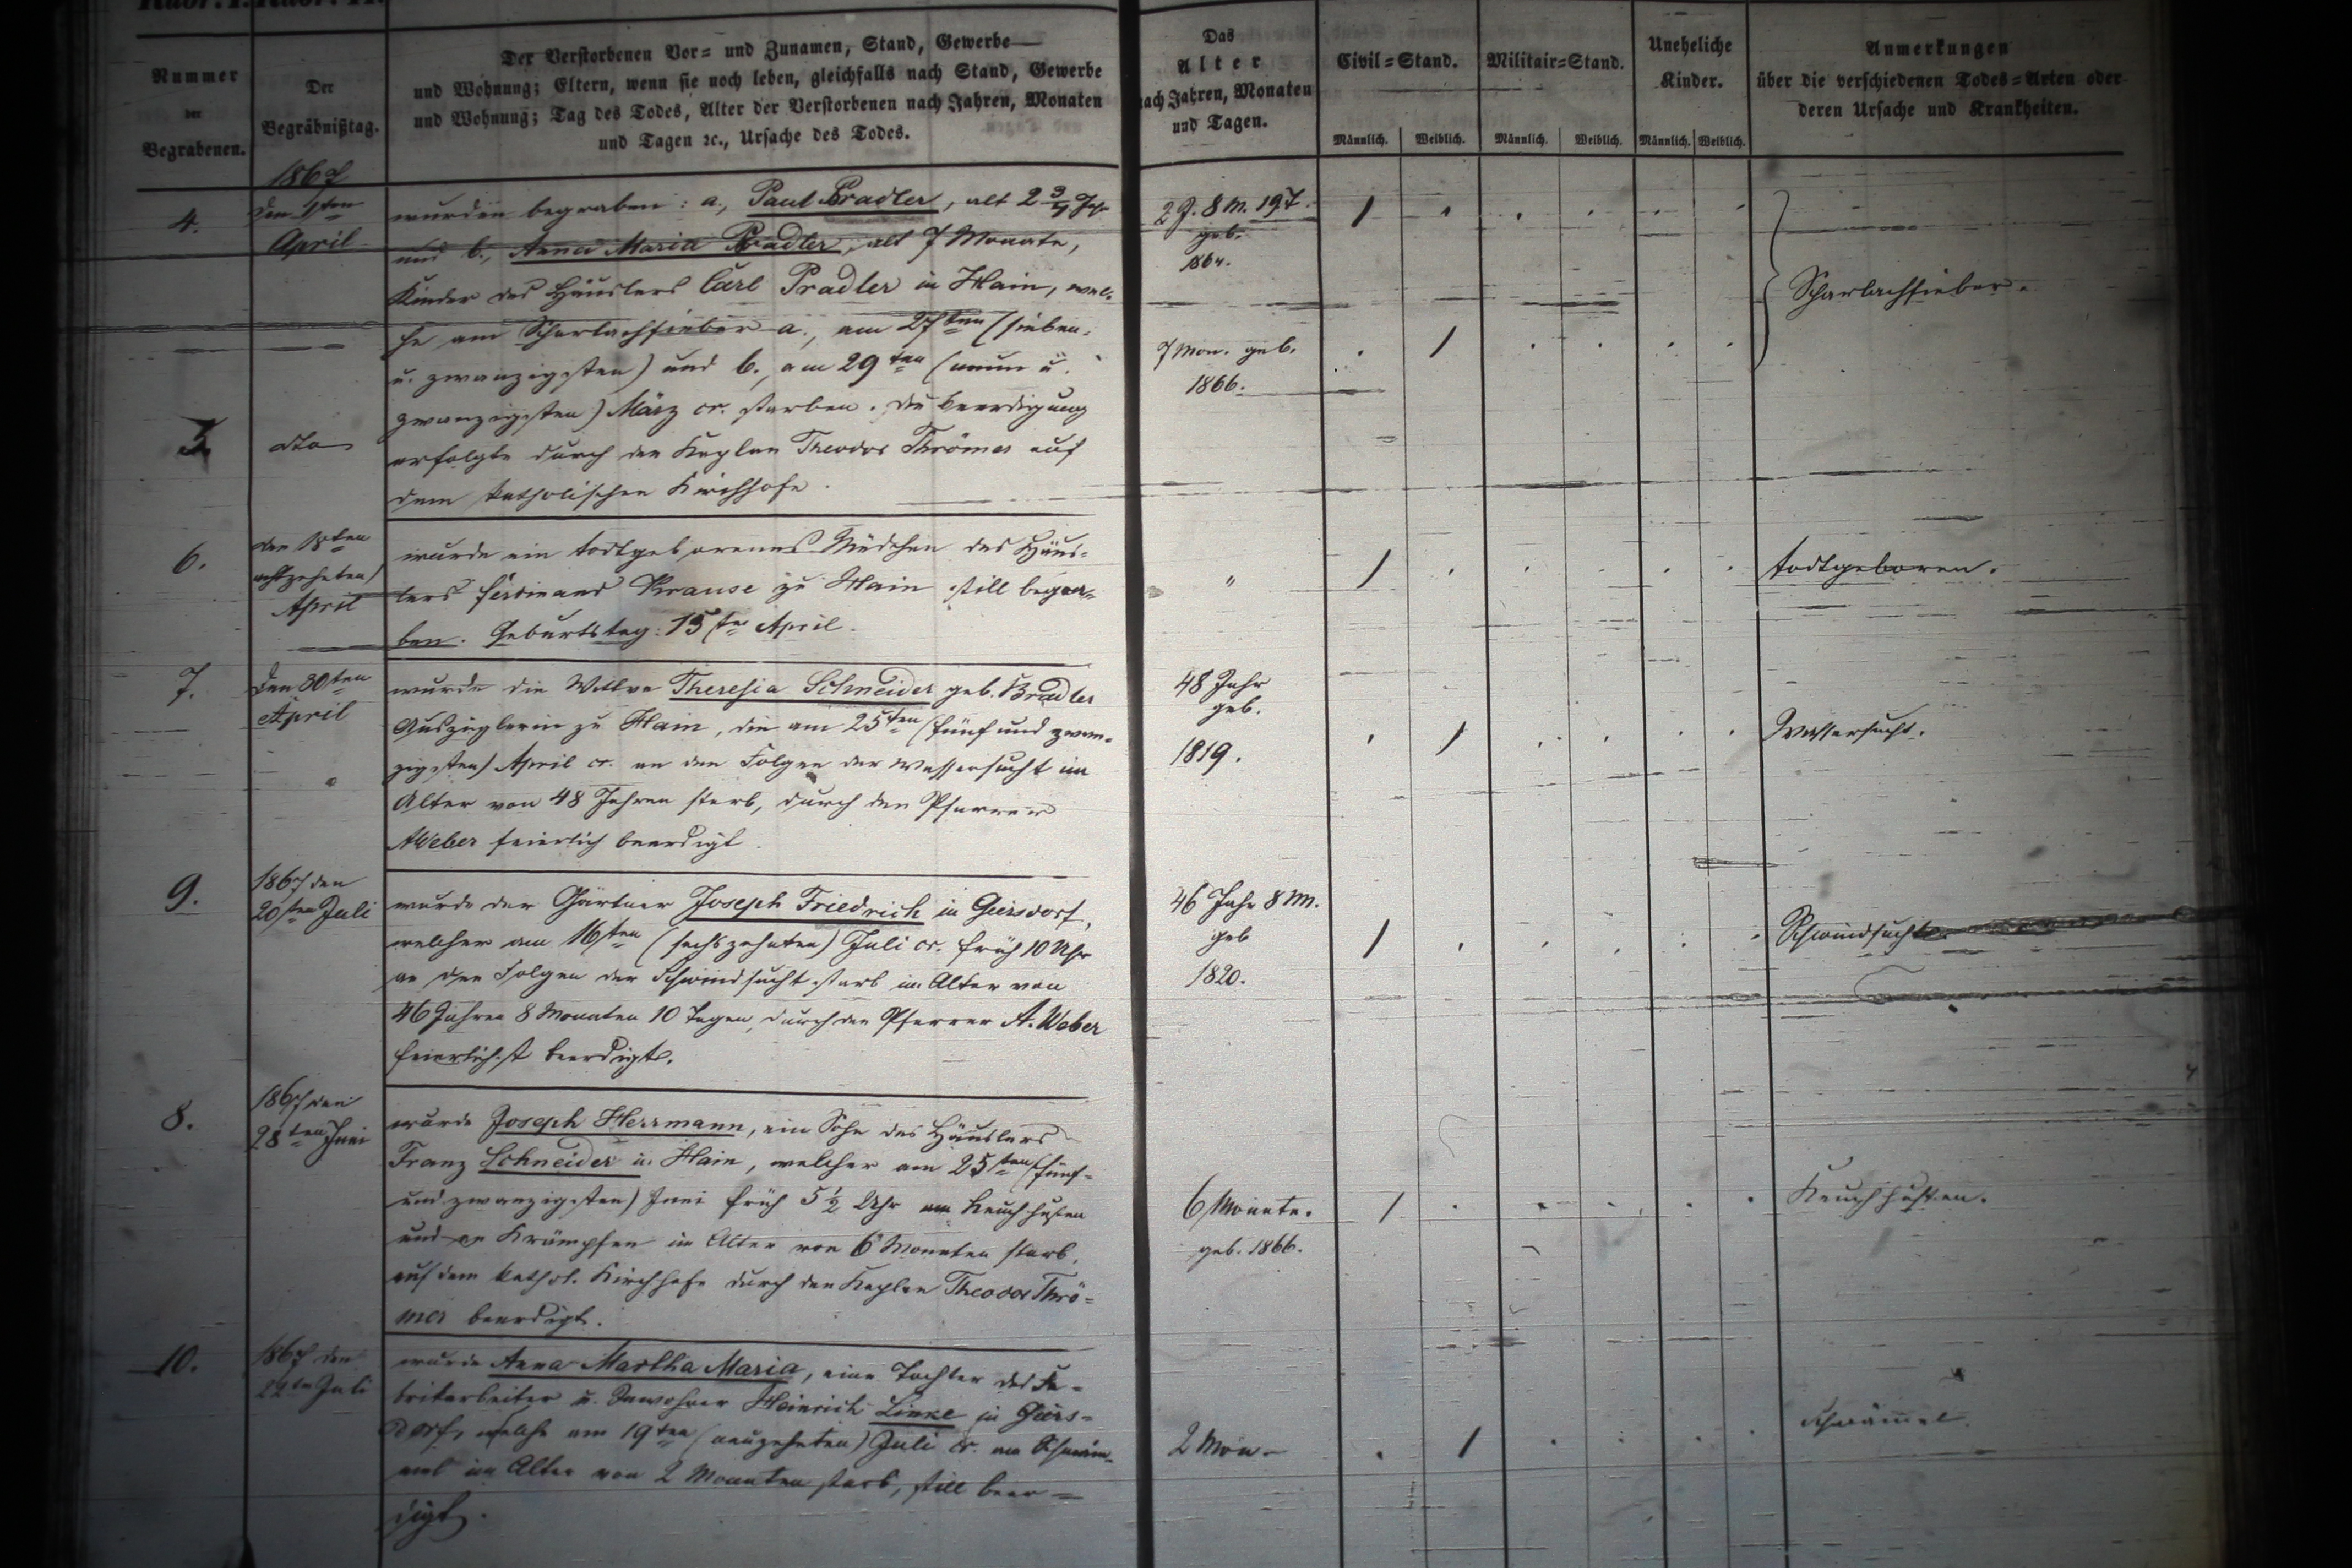 Nummer
der
Begrabenen.
Der
Begräbnißtag.
Der Verstorbenen Vor= und Zunamen, Stand, Gewerbe
und Wohnung; Eltern, wenn sie noch leben, gleichfalls nach Stand, Gewerbe
und Wohnung; Tag des Todes, Alter der Verstorbenen nach Jahren, Monaten
und Tagen ꝛc., Ursache des Todes.
Das
Alter
nach Jahren, Monaten
und Tagen.
Civil=Stand.
Militair=Stand.
Uneheliche
Kinder.
Anmerkungen
über die verschiedenen Todes=Arten oder
deren Ursache und Krankheiten.
Männlich. Weiblich. Männlich. Weiblich. Männlich. Weiblich.
1867
4.
April
wurden begraben: a., Paul Pradler, alt 2 3/4 Jahr
und b., Anna Maria Pradler, alt 7 Monate,
Kinder des Häuslers Carl Pradler in Hain, wel-
che am Scharlachfieber a., am 27ten (sieben
u. zwanzigsten) und b., am 29ten (neun u.
zwanzigsten) März cr. starben. Die Beerdigung
erfolgte durch den Kaplan Theodor Thrömer auf
dem katholischen Kirchhofe.
2 J. 8 M. 19 T.
geb.
1864.
7 Mon. geb.
1866.
Scharlachfieber.
dto
6.
den 18ten
achtzehnten)
April
wurde ein todtgeborenes Mädchen des Häus-
lers Ferdinand Krause zu Hain still begra-
ben. Geburtstag: 15ter April.
"
todtgeboren.
7.
Den 30ten
April
wurde die Wittwe Theresia Schneider geb. Bradler
Auszüglerin zu Hain, die am 25ten (fünf und zwan-
zigsten) April cr. an den Folgen der Wassersucht im
Alter von 48 Jahren starb, durch den Pfarrer
A Weber feierlich beerdigt.
48 Jahr
geb.
1819.
Wassersucht.
9.
1867 den
20sten Juli
wurde der Gärtner Joseph Friedrich in Giersdorf,
welcher am 16ten (sechszehnten) Juli cr. früh 10 Uhr
an den Folgen der Schwindsucht starb im Alter von
46 Jahren 8 Monaten 10 Tagen, durch den Pfarrer A. Weber
feierlichst beerdigt.
46 Jahr 8 M.
geb
1820.
Schwindsucht
8.
1867 den
28ten Juni
wurde Joseph Herrmann, ein Sohn des Häuslers
Franz Schneider in Hain, welcher am 25sten (fünf-
und zwanzigsten) Juni früh 5 1/2 Uhr am Keuchhusten
und an Krämpfen im Alter von 6 Monaten starb,
auf dem kathol. Kirchhofe durch den Kaplan Theodor Thrö-
mer beerdigt.
6 Monate.
geb. 1866.
Keuchhusten.
10.
1867 den
22ten Juli
wurde Anna Martha Maria, eine Tochter des Fa-
brikarbeiter u. Inwohner Heinrich Linke in Giers-
dorf, welche am 19ten (neunzehnten) Juli cr. am Schwäm-
mel im Alter von 2 Monaten starb, still beer-
digt.
2 Mon.
Schwämmel.